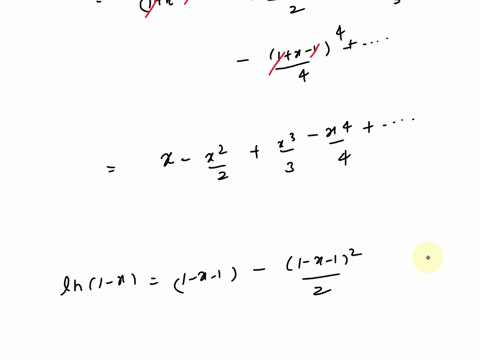 = (1+x
2
3
- (1+x-1)^4/4 + ....
= x - x^2/2 + x^3/3 - x^4/4 + ....
ln(1-x) = (1-x-1) - (1-x-1)^2/2